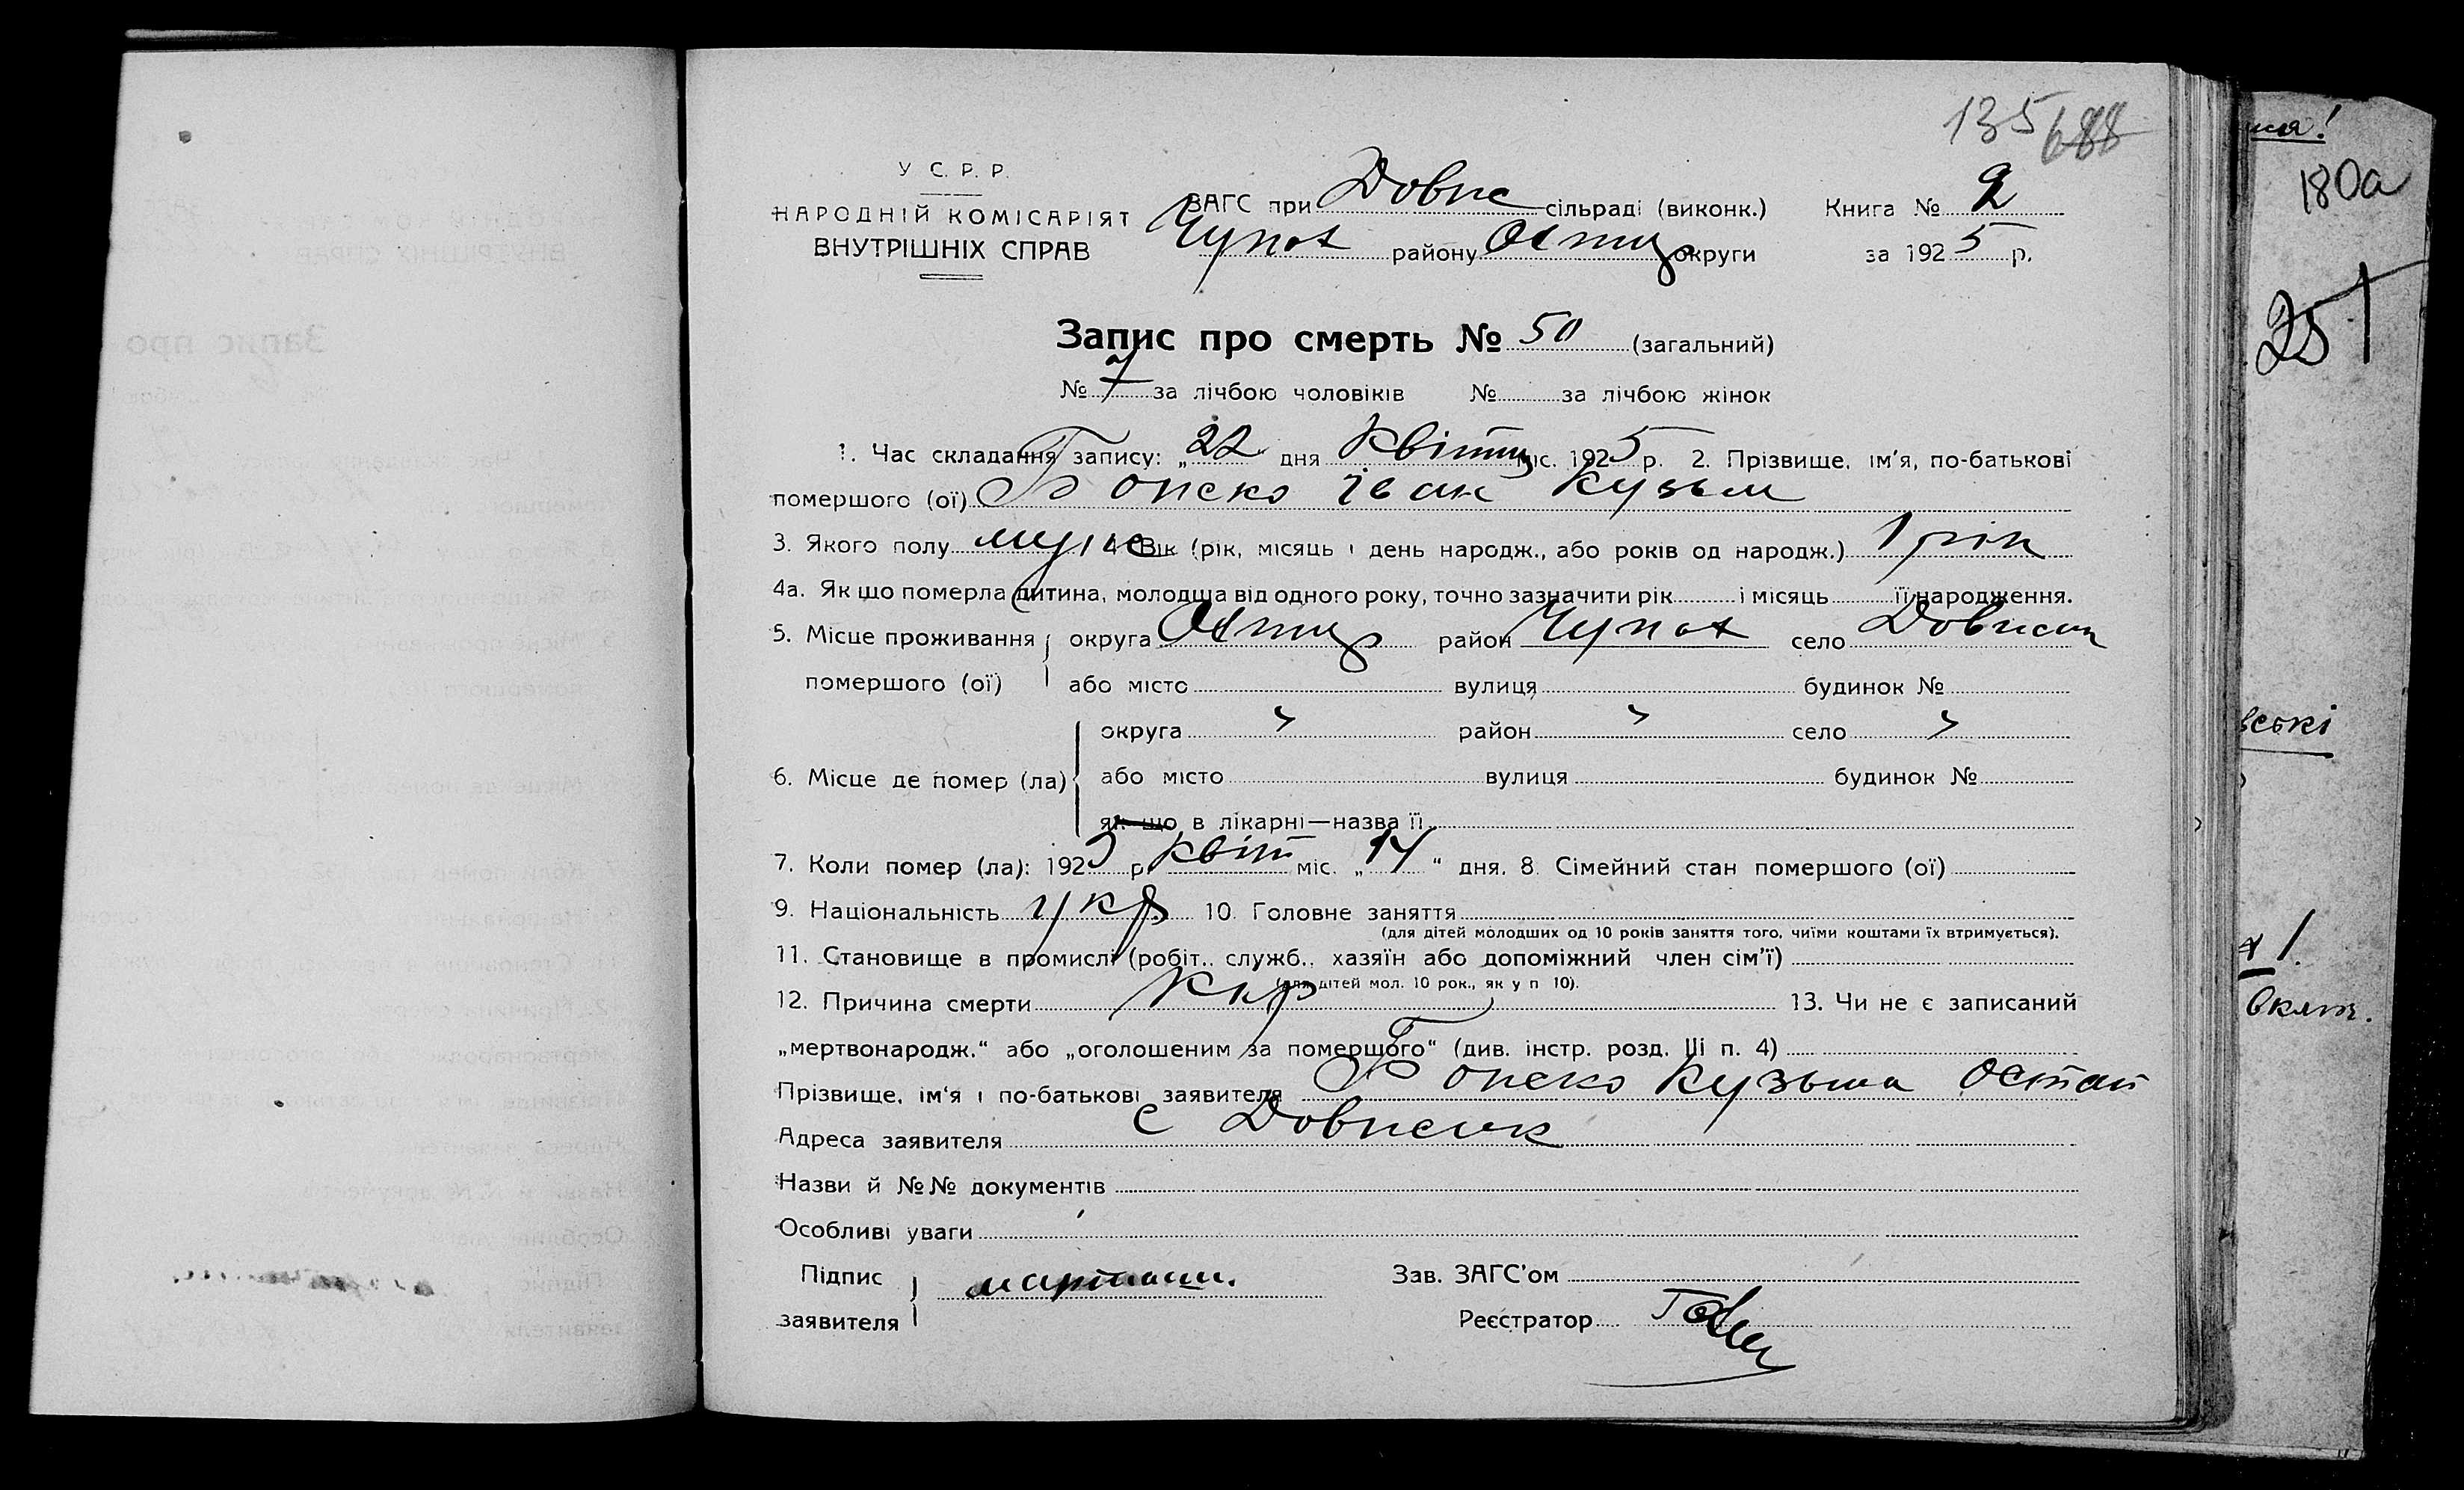 135 688
У С. Р. Р.
НАРОДНІЙ КОМІСАРІЯТ
ВНУТРІШНІХ СПРАВ
ЗАГС при Довпс сільраді (виконк.) Книга № 2
Чупах району Охтир округи за 1925 р.
Запис про смерть № 50 (загальний)
№ 7 за лічбою чоловіків № за лічбою жінок
1. Час складання запису: „22 дня квітня міс. 1925 р. 2. Прізвище, ім'я, по-батькові
помершого (ої) іван Кузьм
3. Якого полу муже 4 Вік (рік, місяць і день народж., або років од народж.) 1 рік
4а. Як що померла дитина, молодща від одного року, точно зазначити рік і місяць її народження.
5. Місце проживання округа Охтир район Чупах село
помершого (ої) або місто вулиця будинок №
округа " район " село "
6. Місце де помер (ла) або місто вулиця будинок №
як що в лікарні—назва її
7. Коли помер (ла): 1925 р. квіт міс. „14 “ дня. 8. Сімейний стан помершого (ої)
9. Національність укр. 10. Головне заняття
(для дітей молодших од 10 років заняття того, чиїми коштами їх втримується).
11. Становище в промислі (робіт., служб., хазяїн або допоміжний член сім'ї)
(для дітей мол. 10 рок., як у п 10).
12. Причина смерти Кир 13. Чи не є записаний
„мертвонародж.“ або „оголошеним за померщого“ (див. інстр. розд. III п. 4)
Прізвище, ім'я і по-батькові заявителя Кузьма Остап
Адреса заявителя с
Назви й №№ документів
Особливі уваги
Підпис
заявителя
Зав. ЗАГС'ом
Реєстратор
180а
251
вські
1.